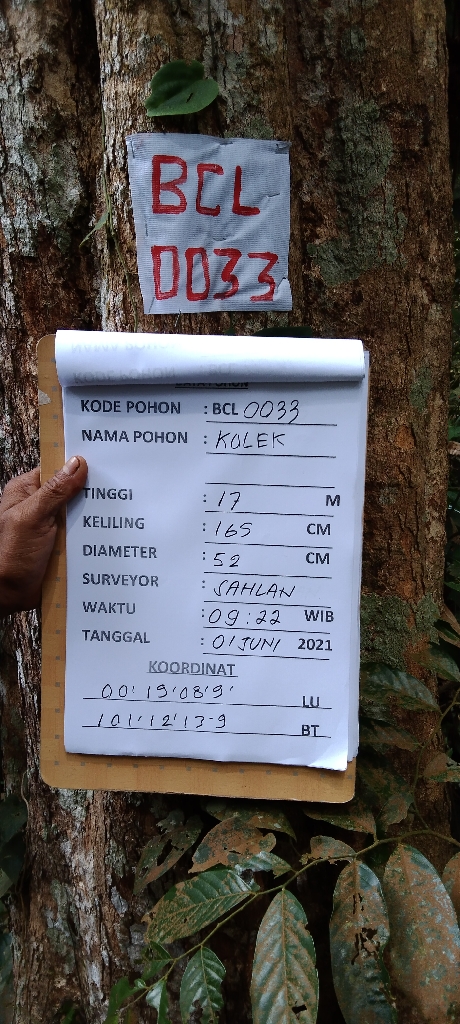 BCL
0033
KODE POHON : BCL 0033
NAMA POHON : KOLEK
TINGGI : 17 M
KELILING : 165 CM
DIAMETER : 52 CM
SURVEYOR : SAHLAN
WAKTU : 09:22 WIB
TANGGAL : 01 JUNI 2021
KOORDINAT
00' 19' 08'9' LU
101' 12' 13-9 BT